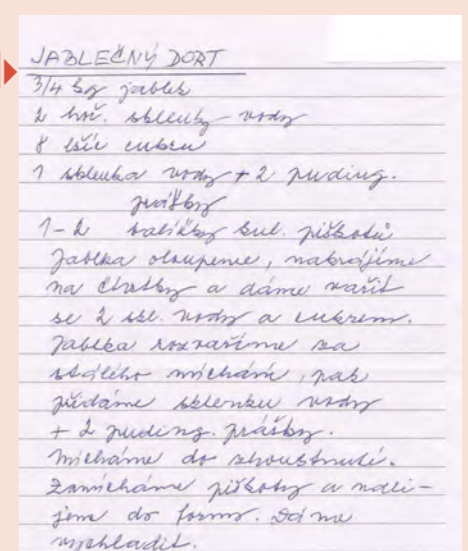 JABLEČNÝ DORT
3/4 kg jablek
2 hoř. sklenky vody
8 lžic cukru
1 sklenka vody + 2 puding.
prášky
1-2 balíčky kul. piškotů
Jablka oloupeme, nakrájíme
na čtvrtky a dáme vařit
se 2 skl. vody a cukrem.
Jablka rozvaříme za
stálého míchání, pak
přidáme sklenku vody
+ 2 puding. prášky.
Mícháme do zhoustnutí.
Zamícháme piškoty a nali-
jeme do formy. Dáme
vychladit.